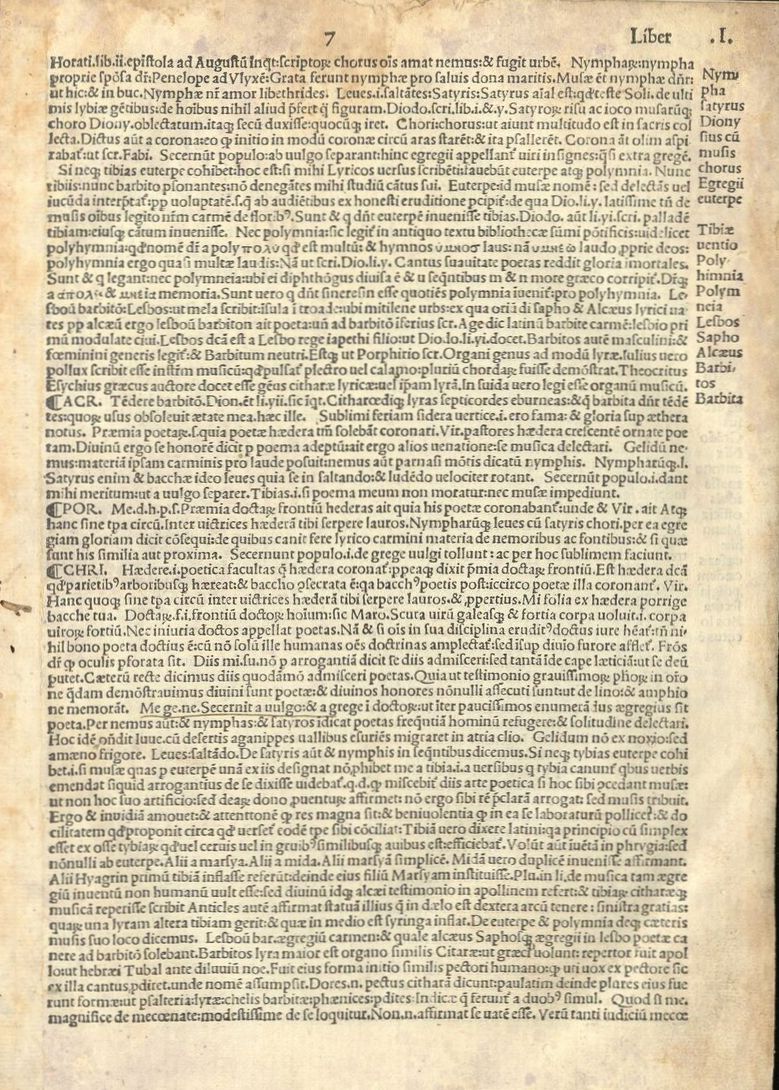 7 Liber .I.
Horati.lib.ii.epistola ad Augustū Inqt:scriptoꝝ chorus oīs amat nemus:& fugit urbē. Nymphaꝝ:nympha
proprie spōsa dr̄:Penelope ad Vlyxē:Grata ferunt nymphæ pro saluis dona maritis. Musæ ēt nymphæ dn̄r:
ut hic:& in buc. Nymphæ nr̄i amor libethrides. Leues.i.saltātes:Satyris:Satyrus aīal est:qd'teste Soli.de ulti
mis lybiæ gētibus:de hoībus nihil aliud p̄fert q̄ figuram. Diodo.scri.lib.i.&.y. Satyroꝝ risu ac ioco musarūqꝫ
choro Diony.oblectatum.itaqꝫ secū duxisse:quocūqꝫ iret. Chori:chorus:ut aiunt multitudo est in sacris col
lecta. Dictus aūt a corona:eo ꝙ initio in modū coronæ circū aras starēt:& ita psallerēt. Corona āt olim aspi
rabat̄:ut scr. Fabi. Secernūt populo:ab uulgo separant:hinc egregii appellant̄ uiri insignes:q̄si extra gregē.
Si neqꝫ tibias euterpe cohibet:hoc est:si mihi Lyricos uersus scribēti:auebūt euterpe atqꝫ polymnia. Nunc
tibiis:nunc barbito psonantes:nō denegātes mihi studiū cātus sui. Euterpe:id musæ nomē:sed delectās uel
iucūda interp̄tat̄:pp uoluptatē.s.q̄ ab audiētibus ex honesti eruditione pcipit̄:de qua Dio.li.y. latissime tn̄ de
musis oībus legito nr̄m carmē de floribꝰ. Sunt & q dn̄t euterpē inuenisse tibias. Diodo. aūt li.yi.scri. palladē
tibiam:eiusqꝫ cātum inuenisse. Nec polymnia:sic legit̄ in antiquo textu bibliothecæ sūmi pōtificis:uidelicet
polyhymnia:qd'nomē dr̄ a poly πολὺ qd' est multū:& hymnos ὑμνος laus:nā ὑμνῶ laudo,pprie deos:
polyhymnia ergo quasi multæ laudis:Nā ut scri.Dio.li.y. Cantus suauitate poetas reddit gloria īmortales.
Sunt & q legant:nec polymneia:ubi ei diphthōgus diuisa ē & u seqn̄tibus m & n more græco corripit̄. Dr̄qꝫ
a πολὺ & μνεία memoria. Sunt uero q dn̄t sineresin esse quotiēs polymnia īuenit̄:pro polyhymnia. Le
sboū barbitō:Lesbos:ut mela scribit:īsula ī troade:ubi mitilene urbs:ex qua oriā di sapho & Alcæus lyrici na
tes pp alcæū ergo lesboū barbiton ait poeta:un̄ ad barbitō īferius scr. Age dic latinū barbite carmē:lesbio pri
mū modulate ciui. Lesbos dc̄a est a Lesbo rege iapethi filio:ut Dio.lo.li.yi.docet. Barbitos autē masculini:&
fœminini generis legit̄:& Barbitum neutri. Estqꝫ ut Porphirio scr. Organi genus ad modū lyræ. Iulius uero
pollux scribit esse instr̄m musicū:qd'pulsat̄ plectro uel calamo:pluriū chordaꝝ fuisse demōstrat. Theocritus
Esychius græcus auctore docet esse gēus citharæ lyricæ:uel ipam lyrā. In suida uero legi esse organū musicū.
¶ACR. Tēdere barbitō. Dion.ēt li.yii.sic īqt. Citharœdiqꝫ lyras septicordes eburneas:&q̄ barbita dn̄t tēdē
tes:quoꝝ usus obsoleuit ætate mea.hæc ille. Sublimi feriam sidera uertice.i.ero fama:& gloria sup æthera
notus. Præmia poetaꝝ.s.quia poetæ hædera tm̄ solebāt coronari. Vir.pastores hædera crescentē ornate poe
tam. Diuinū ergo se honorē dicit p poema adeptū:ait ergo alios uenatione:se musica delectari. Gelidū ne-
mus:materiā ipsam carminis pro laude posuit:nemus aūt parnasi mōtis dicatū nymphis. Nympharūqꝫ.l.
Satyrus enim & bacchæ ideo leues quia se in saltando:& ludēdo uelociter rotant. Secernūt populo.i.dant
mihi meritum:ut a uulgo separer. Tibias.i.si poema meum non moratur:nec musæ impediunt.
¶POR. Me.d.h.p.f. Præmia doctaꝝ frontiū hederas ait quia his poetæ coronabant̄:unde & Vir . ait Atqꝫ
hanc sine tpa circū. Inter uictrices hæderā tibi serpere lauros. Nympharūqꝫ leues cū satyris chori.per ea egre
giam gloriam dicit cōsequi:de quibus canit fere lyrico carmini materia de nemoribus ac fontibus:& si quæ
sunt his similia aut proxima. Secernunt populo.i.de grege uulgi tollunt : ac per hoc sublimem faciunt.
¶CHRI. Hædere.i.poetica facultas q̄ hædera coronat̄:ppeaqꝫ dixit p̄mia doctaꝝ frontiū. Est hædera dc̄a
qd'parietibꝰarboribusqꝫ hæreat:& baccho ↄsecrata ē:qa bacchꝰpoetis post:iccirco poetæ illa coronant̄. Vir.
Hanc quoqꝫ sine tpa circū inter uictrices hæderā tibi serpere lauros.& ,ppertius. Mi folia ex hædera porrige
bacche tua. Doctaꝝ.f.i.frontiū doctoꝝ hoīum:sic Maro. Scuta uirū galeasqꝫ & fortia corpa uoluit.i. corpa
uiroꝝ fortiū. Nec iniuria doctos appellat poetas. Nā & si oīs in sua disciplina eruditꝰdoctus iure hēat̄:tn̄ ni
hil bono poeta doctius ē:cū nō solū ille humanas oēs doctrinas amplectat̄:sed īsup diuio furore afflet̄. Frōs
dr̄ ꝙ oculis pforata sit. Diis mi.su.nō p arrogantiā dicit se diis admisceri:sed tantā īde cape læticiā:ut se deū
putet. Cæterū recte dicimus diis quodāmō admisceri poetas. Quia ut testimonio grauissimoꝝ phoꝝ in orōe
ne q̄dam demōstrauimus diuini sunt poetæ:& diuinos honores nōnulli assecuti sunt:ut de lino:& amphio
ne memorāt. Me ge.ne.Secernit a uulgo:& a grege ī doctoꝝ:ut iter paucissimos enumerā ius ægregius sit
poeta. Per nemus aūt:& nymphas:& satyros īdicat poetas freqn̄tiā hominū refugere:& solitudine delectari.
Hoc idē on̄dit Iuue.cū desertis aganippes uallibus esuriēs migraret in atria clio. Gelidum nō ex noxio:sed
amæno frigore. Leues:saltādo. De satyris aūt & nymphis in seqn̄tibus dicemus. Si neqꝫ tybias euterpe cohi
bet.i.si musæ quas p euterpē unā ex iis designat nō,phibet me a tibia.i.a uersibus q tybia canunt̄ qbus uerbis
emendat siquid arrogantius de se dixisse uidebat̄.q.d.ꝙ miscebit̄ diis arte poetica si hoc sibi ↄcedant musæ:
ut non hoc suo artificio:sed deaꝝ dono ,puenturꝝ affirmet: nō ergo sibi rē p̄clarā arrogat: sed musis tribuit.
Ergo & inuidiā amouet:& attentionē ꝙ res magna sit:& beniuolentia ꝙ in ea se laboraturū pollicet̄:& do
cilitatem qd'proponit circa qd' uerset̄ eodē tpe sibi cōciliat: Tibiā uero dixere latini:qa principio cū simplex
esset ex osse tybiaꝝ qd'uel ceruis uel in gruibꝰsimilibusqꝫ auibus est:efficiebat̄. Volūt aūt iuētā in phrygia:sed
nōnulli ab euterpe. Alii a marsya. Alii a mida. Alii marsyā simplicē. Midā uero duplicē inuenisse affirmant.
Alii Hyagrin primū tibiā inflasse referūt:deinde eius filiū Marsyam instituisse. Plu.in li.de musica tam ægre
giū inuentū non humanū uult esse:sed diuinū idqꝫ alcæi testimonio in apollinem refert:& tibiaꝝ citharæqꝫ
musicā reperisse scribit Anticles autē affirmat statuā illius q̄ in dælo est dextera arcū tenere : sinistra gratias:
quaꝝ una lyram altera tibiam gerit:& quæ in medio est syringa inflat. De euterpe & polymnia deqꝫ cæteris
musis suo loco dicemus. Lesboū bar.ægregiū carmen:& quale alcæus Saphosqꝫ ægregii in lesbo poetæ ca
nere ad barbitō solebant. Barbitos lyra maior est organo similis Citaræ:ut græci uolunt: repertor fuit apol
lo:ut hebræi Tubal ante diluuiū noe. Fuit eius forma initio similis pectori humano:ꝙ uti uox ex pectore sic
ex illa cantus,pdiret.unde nomē assumpsit. Dores.n. pectus citharā dicunt:paulatim deinde plures eius fue
runt formæ:ut psalteria:lyræ:chelis barbitæ:phænices:pdites:Indicæ q̄ ferunt̄ a duobꝰ simul. Quod si me.
magnifice de mecœnate:modestissime de se loquitur. Non.n.affirmat se uatē esse. Verū tanti iudiciū mecœ
Nym
pha
satyrus
Diony
sius cū
musis
chorus
Egregii
euterpe
Tibiæ
uentio
Poly-
himnia
Polym
neia
Lesbos
Sapho
Alcæus
Barbi-
tos
Barbita